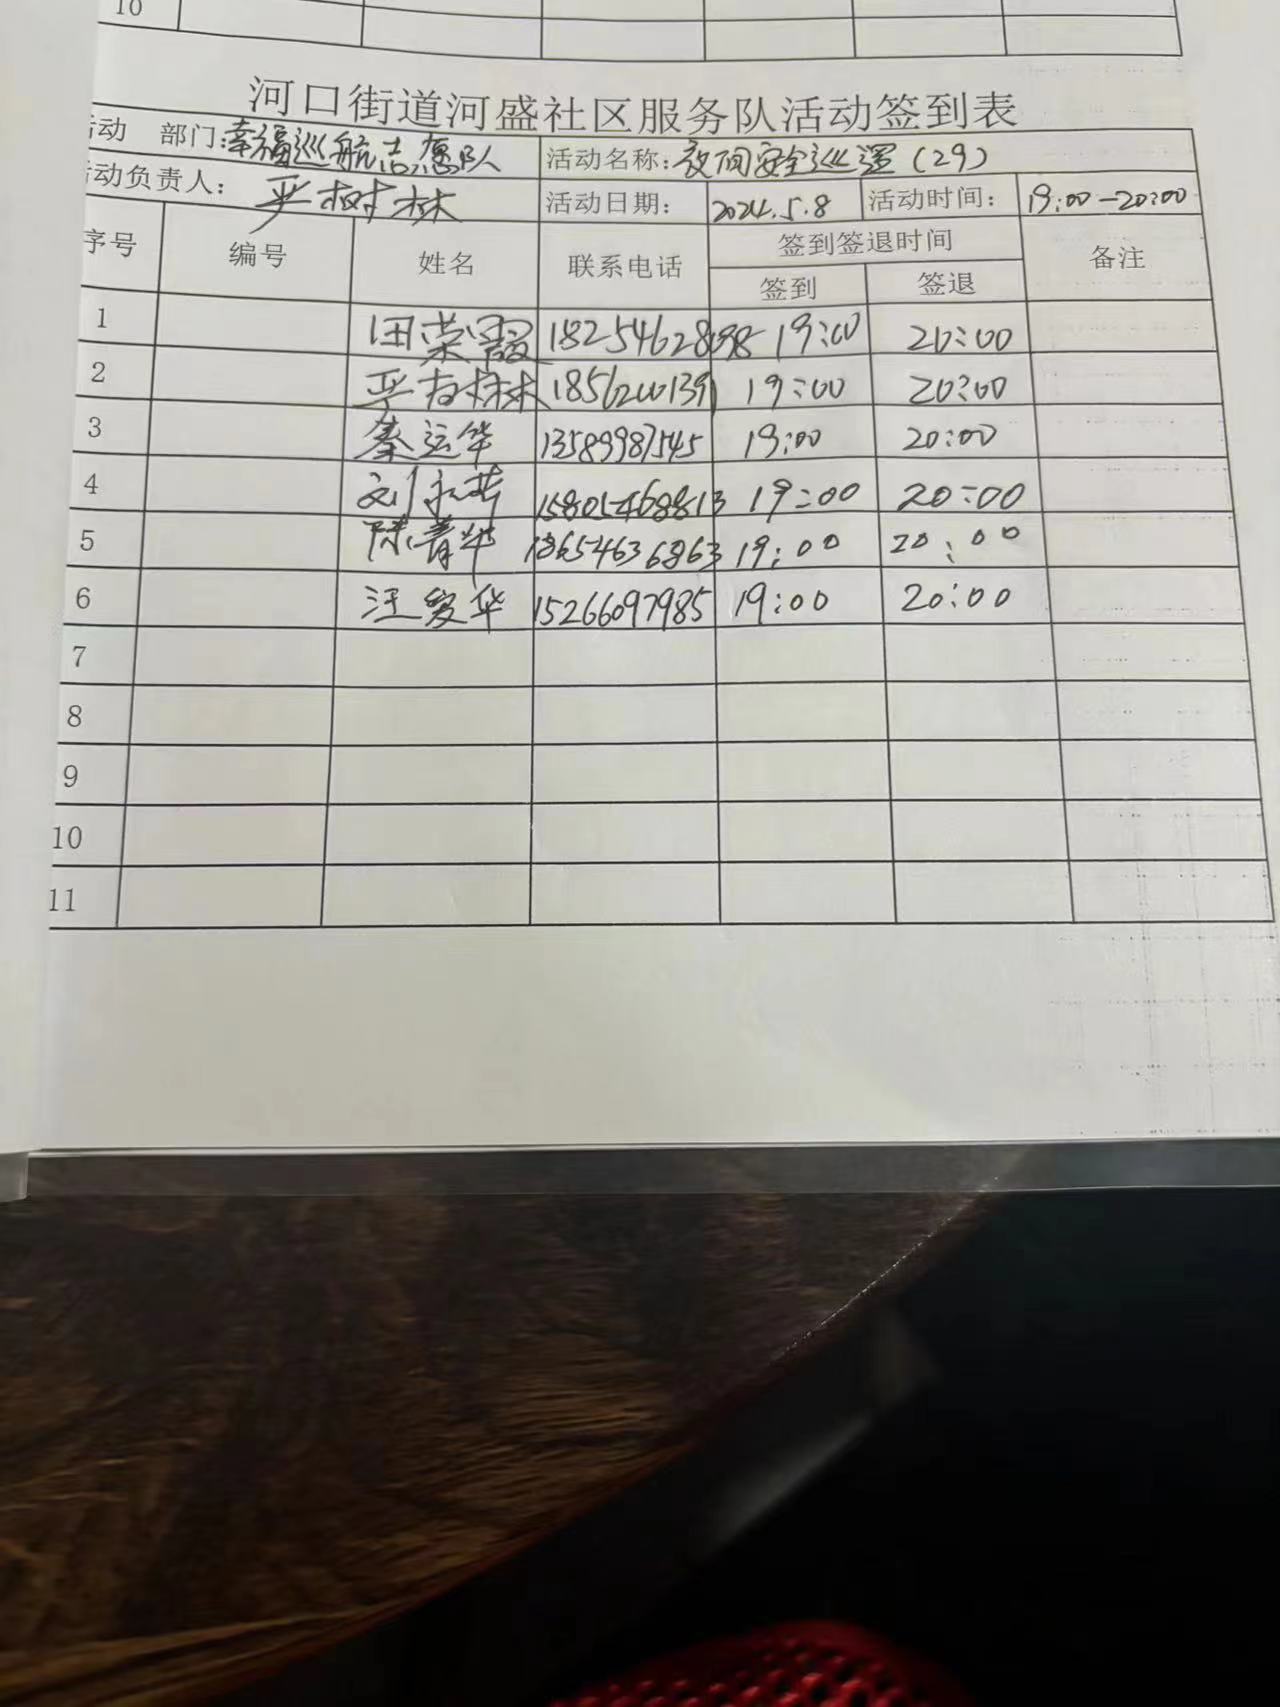 10
河口街道河盛社区服务队活动签到表
活动 部门:幸福巡航志愿队 活动名称:夜间安全巡逻(29)
活动负责人: 严树林 活动日期: 2024.5.8 活动时间: 19:00-20:00
序号 编号 姓名 联系电话 签到签退时间 备注
签到 签退
1 田荣霞 18254628098 19:00 20:00
2 严树林 18562001391 19:00 20:00
3 秦运华 13589987545 19:00 20:00
4 刘 15805468813 19:00 20:00
5 陈青华 18654636863 19:00 20:00
6 汪爱华 15266097985 19:00 20:00
7
8
9
10
11